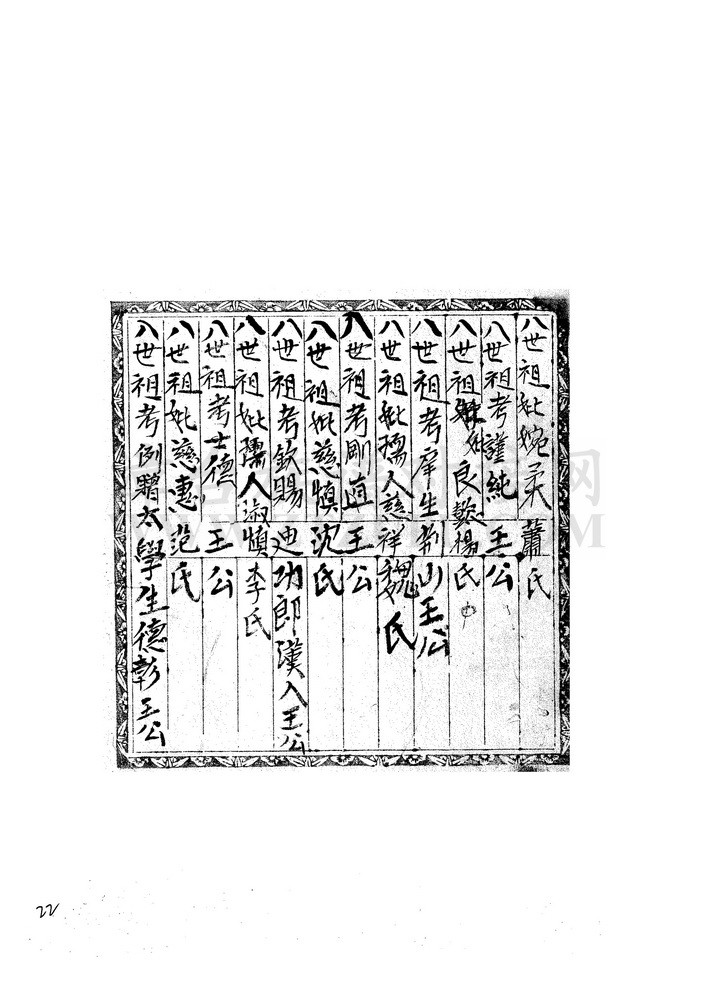 八世祖妣婉柔蕭氏
八世祖考謹純王公
八世祖妣良懿楊氏
八世祖考庠生荆山王公
八世祖妣孺人慈祥魏氏
八世祖考剛直王公
八世祖妣慈慎沈氏
八世祖考欽賜迪功郎漢入王公
八世祖妣孺人淑慎李氏
八世祖考士德王公
八世祖妣慈惠范氏
八世祖考例贈太學生德彰王公
22